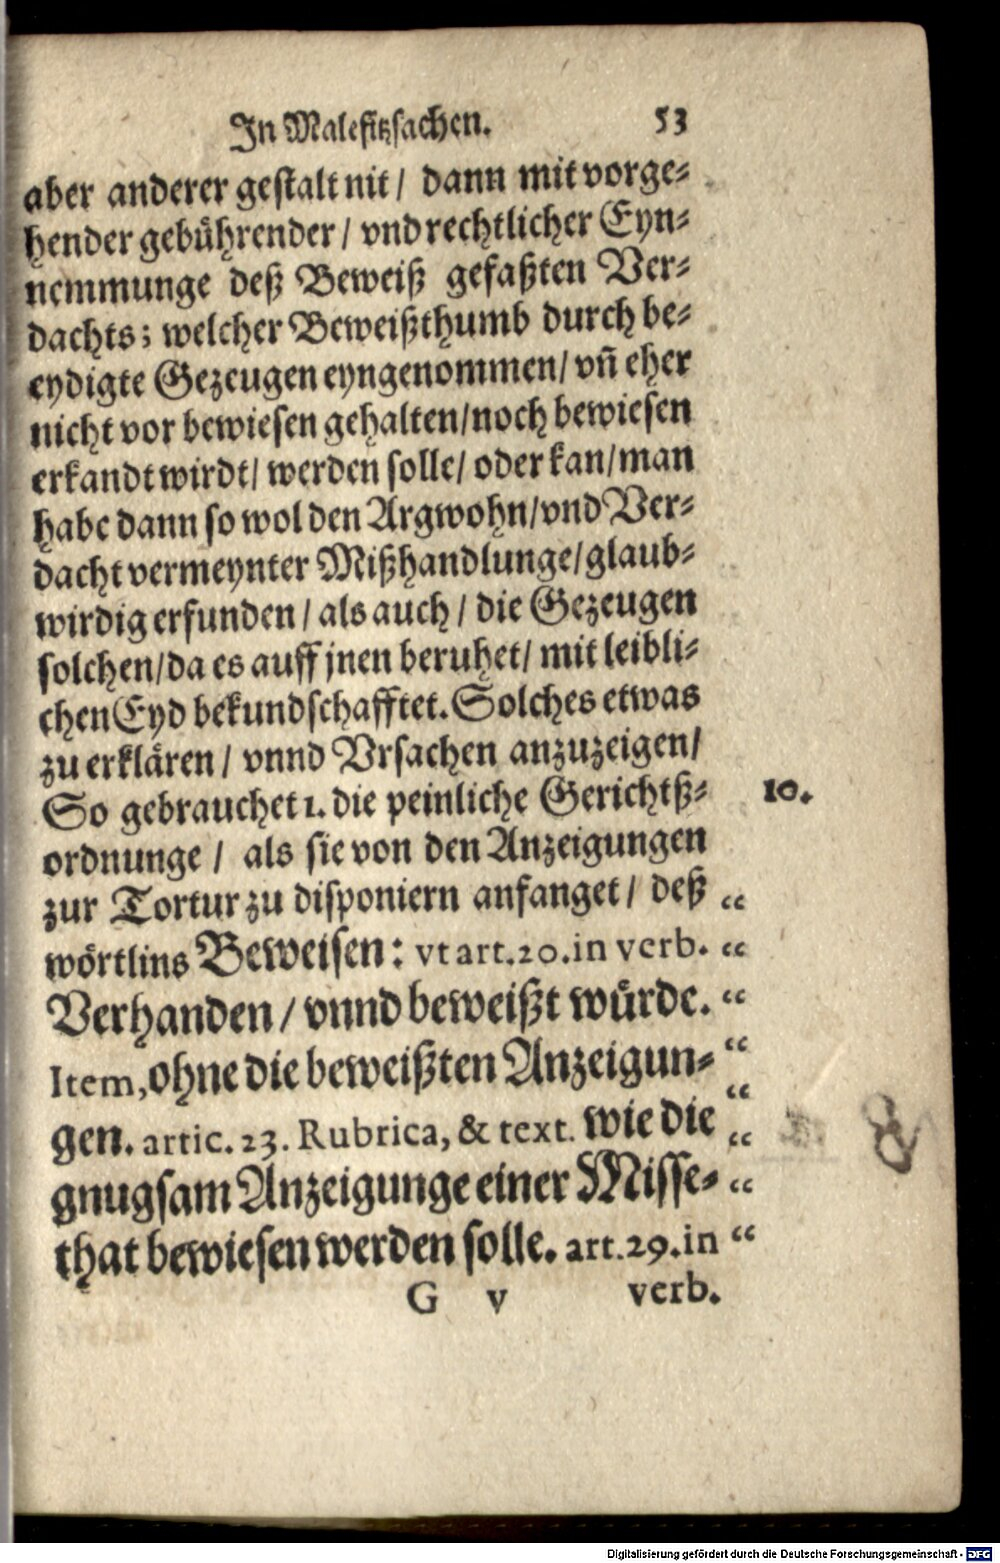 In Malefitzsachen. 53
aber anderer gestalt nit / dann mit vorge⸗
hender gebührender / vnd rechtlicher Eyn⸗
nemmunge deß Beweiß gefaßten Ver⸗
dachts; welcher Beweißthumb durch be⸗
eydigte Gezeugen eyngenommen / vñ eher
nicht vor bewiesen gehalten / noch bewiesen
erkandt wirdt / werden solle / oder kan / man
habe dann so wol den Argwohn / vnd Ver⸗
dacht vermeynter Mißhandlunge / glaub⸗
wirdig erfunden / als auch / die Gezeugen
solchen / da es auff jnen beruhet / mit leibli⸗
chen Eyd bekundschafftet. Solches etwas
zu erklären / vnnd Vrsachen anzuzeigen /
So gebrauchet 1. die peinliche Gerichtß⸗ 10.
ordnunge / als sie von den Anzeigungen
zur Tortur zu disponiern anfanget / deß “
wörtlins Beweisen: vt art. 20. in verb. “
Verhanden / vnnd beweißt würde. “
Item, ohne die beweißten Anzeigun⸗ “
“
gen. artic. 23. Rubrica, & text. wie die “
gnugsam Anzeigunge einer Misse⸗ “
that bewiesen werden solle. art. 29. in “
G v verb.
Digitalisierung gefördert durch die Deutsche Forschungsgemeinschaft - DFG